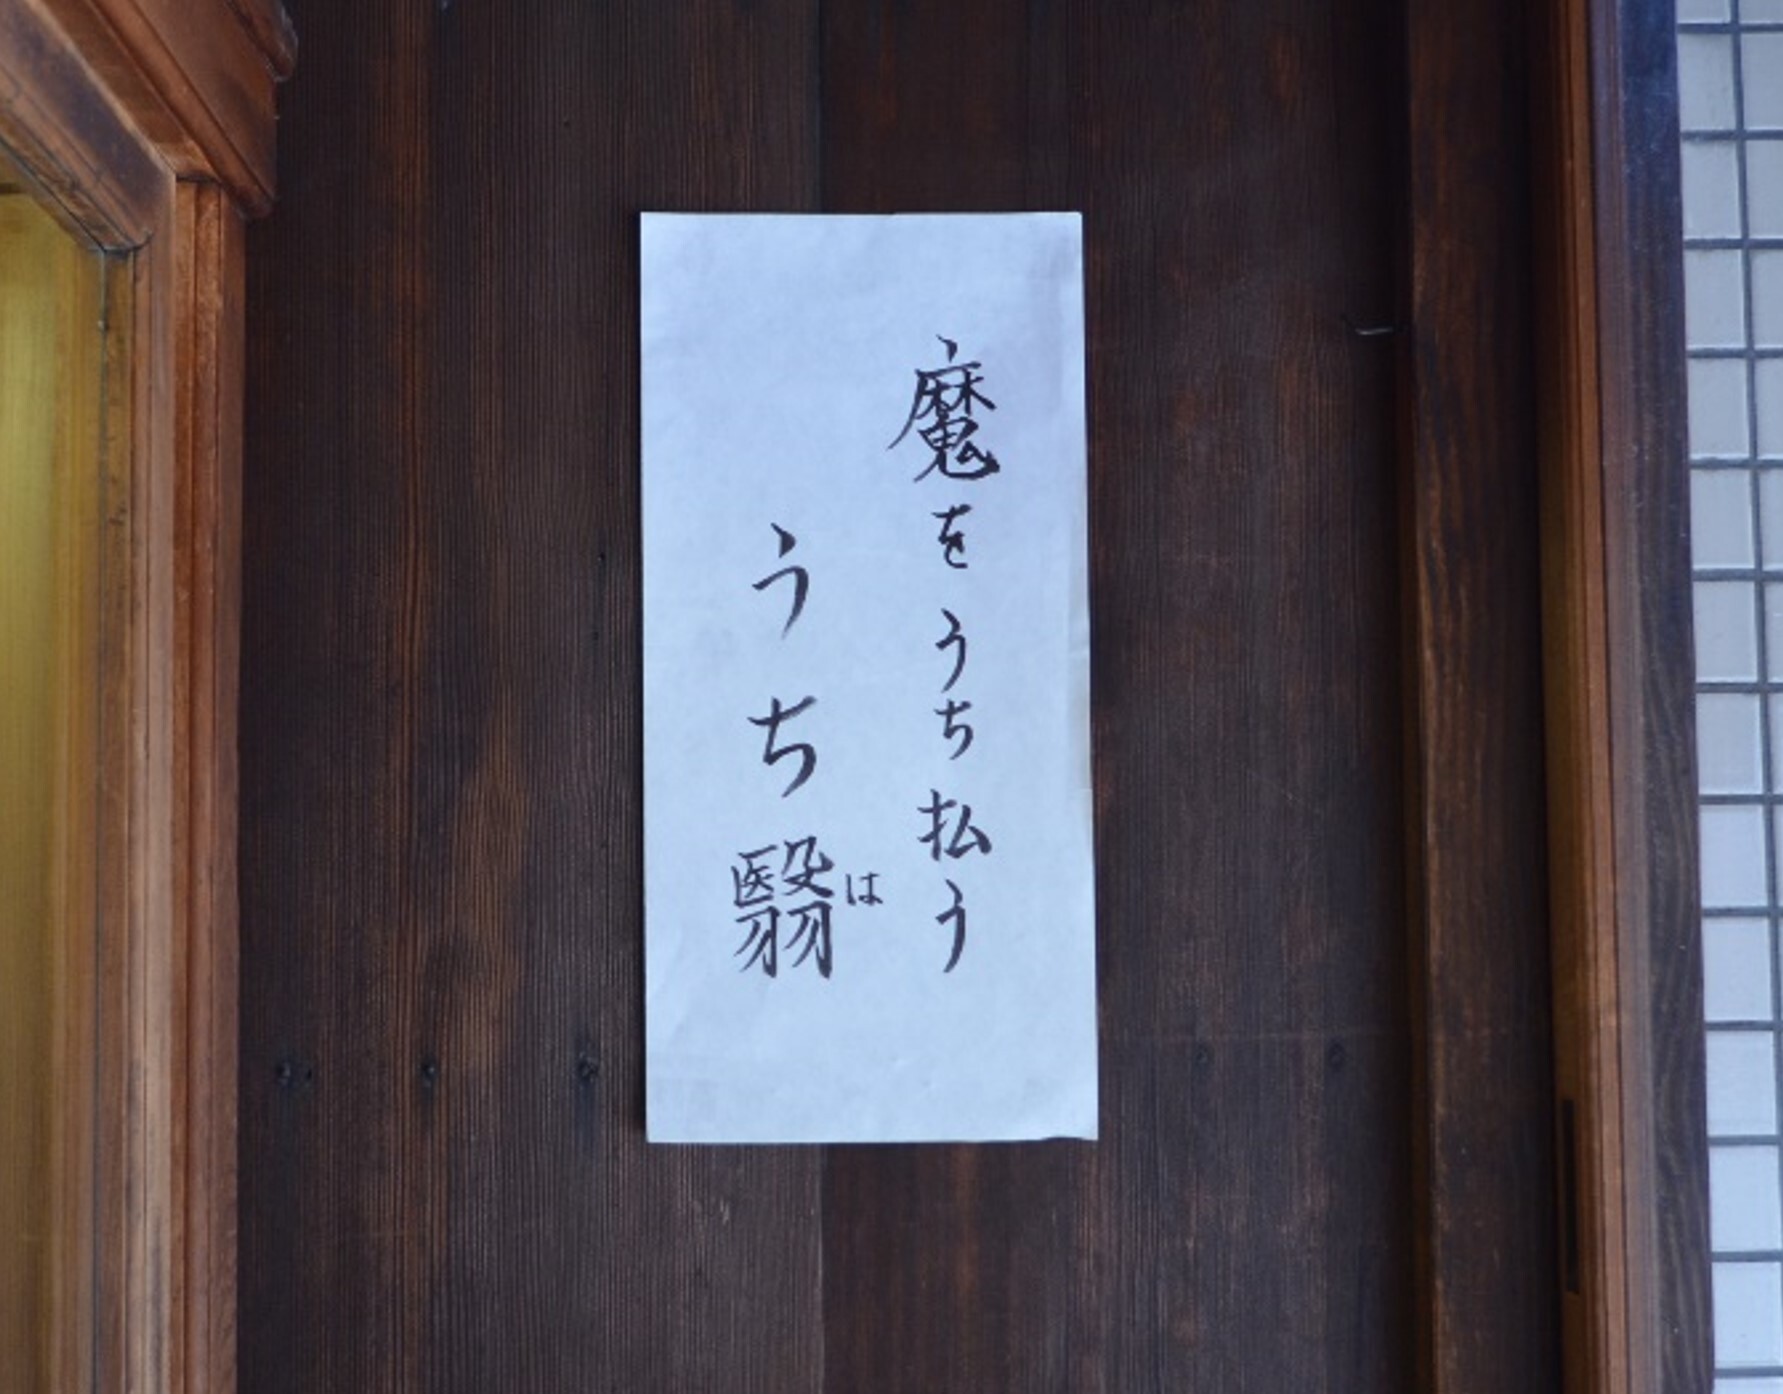 魔をうち払う
うち翳は